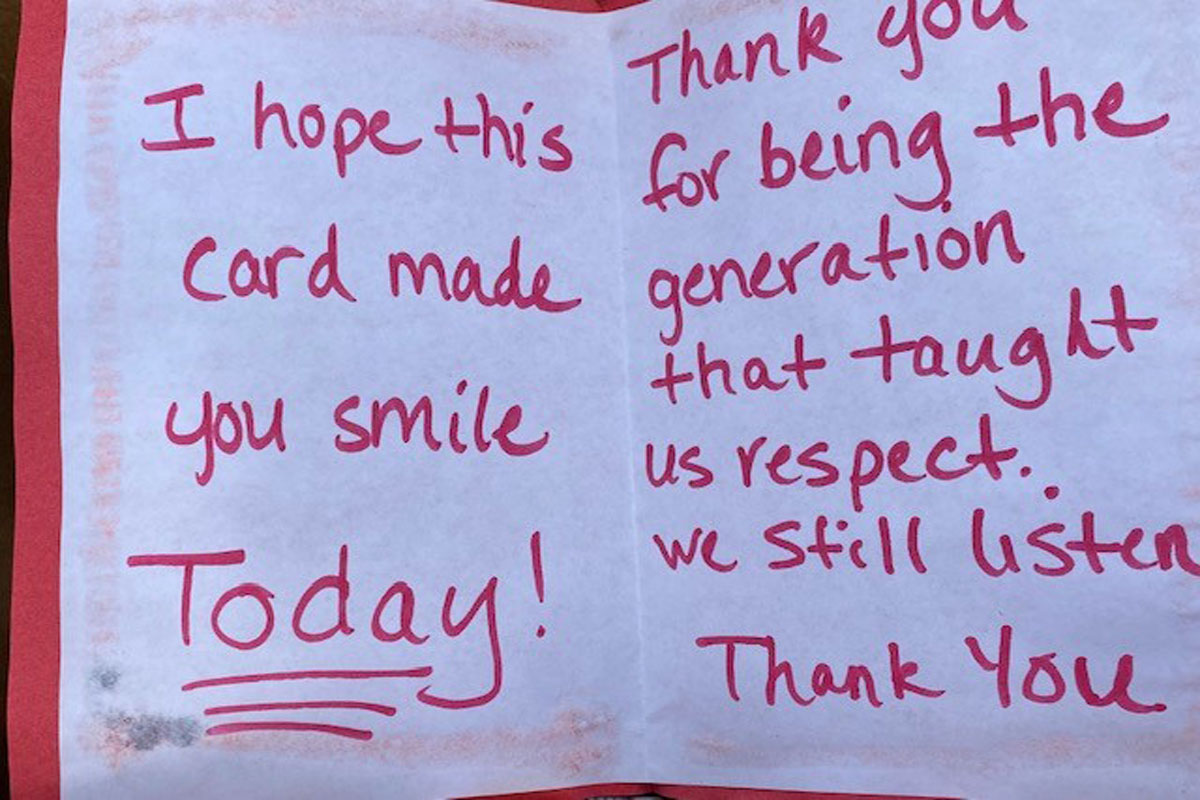 I hope this
card made
you smile
Today!
Thank you
for being the
generation
that taught
us respect.
we still listen
Thank You